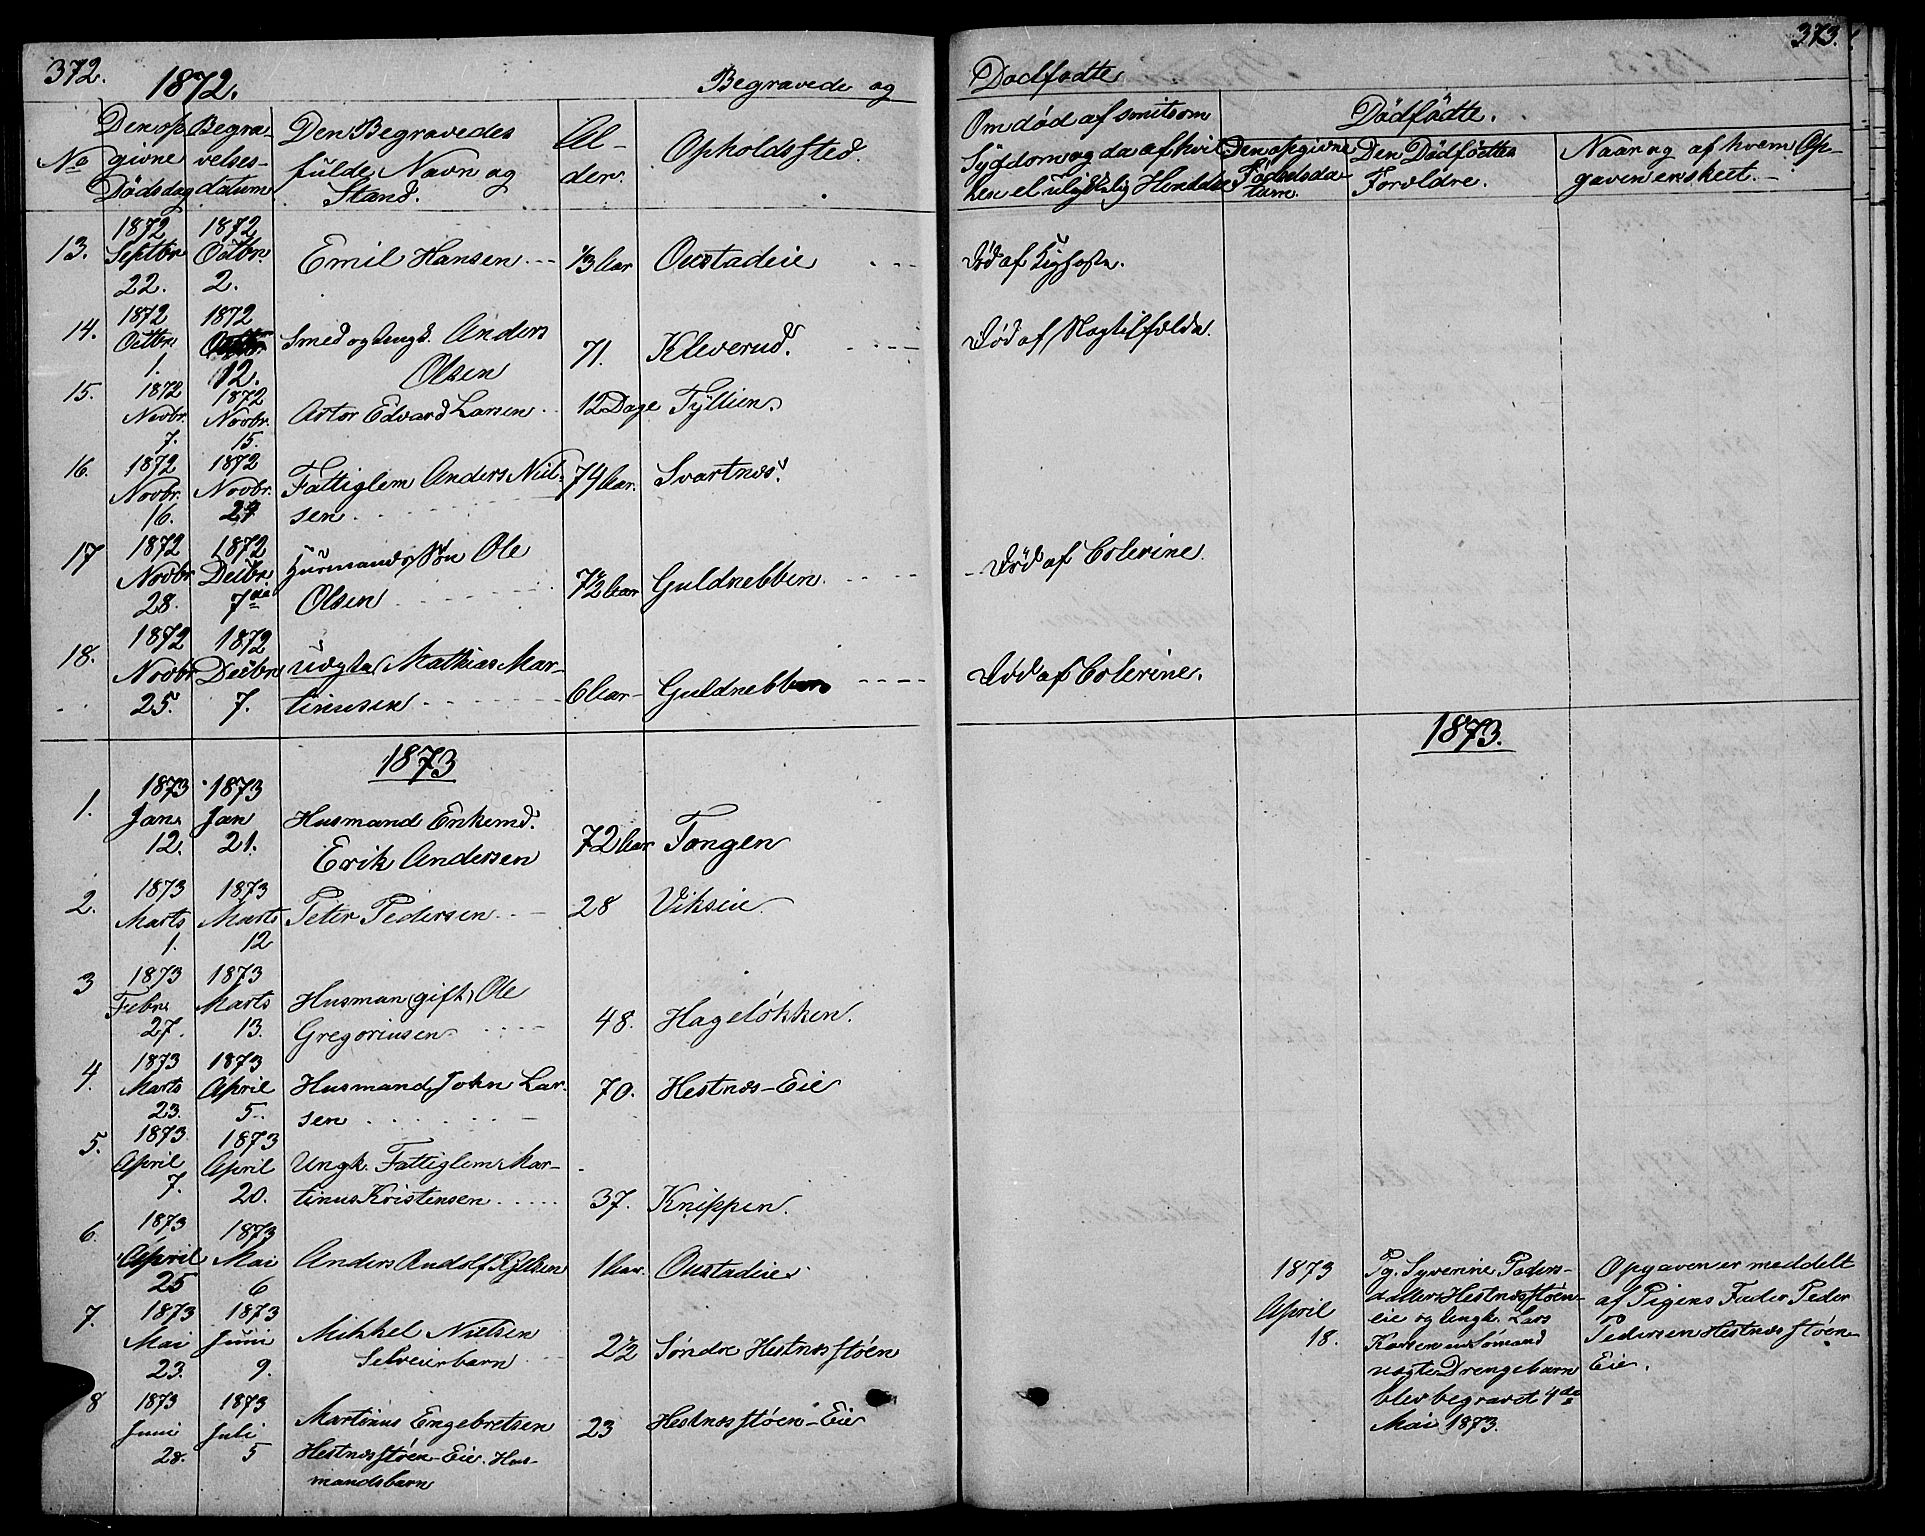 372.
1872.
Begravede og
No
Den op
givne
Dödsdag
Begra-
velses-
datum
Den Begravedes
fulde Navn og
Stand.
Al-
der.
Opholdssted.
13.
1872
Septbr
22.
1872
Octbr.
2.
Emil Hansen
1/3 Aar
Oustadeie
14.
1872
Octbr
1.
1872
12.
Smed og Ungk. Anders
Olsen
71.
Kleverud.
15.
1872
Novbr.
7.
1872
Novbr.
15.
Edvard Larsen
12 Dage
Tyllien.
16.
1872
Novbr.
16.
1872
Novbr.
27
Fattiglem Anders Niel-
sen
74 Aar.
Svartnes.
17
1872
Novbr
28.
1872
Decbr
7de
Husmands Søn Ole
Olsen
7½ Aar
Guldnebben.
18.
1872
Novbr
25.
1872
Decbr
7.
Uægte Mathias Mar-
tinusen
6 Aar
Guldnebben
1873
1.
1873
Jan.
12.
1873
Jan
21.
Husmand Enkemd.
Erik Andersen
72 Aar
Tongen
2.
1873
Marts
1.
1873
Marts
12
Peter Pedersen
28
Vikseie
3
1873
Febr.
27.
1873
Marts
13.
Husman (gift) Ole
Gregoriusen
48.
Hageløkken.
4.
1873
Marts
23.
1873
April
5.
Husmand John Lar-
sen
70.
Hestnes-Eie
5.
1873
April
7.
1873
April
20.
Ungk. Fattiglem Mar-
tinus Kristensen
37.
Knippen.
6.
1873
April
25
1873
Mai
6
Anders Andolf
1 Aar.
Oustadeie
7.
1873
Mai
23.
1873
Juni
9.
Mikkel Nielsen
Selveierbarn
2½
Søndre Hestnesstøen
8
1873
Juni
28.
1873
Juli
5
Martinus Engebretsen
Hestnesstøen-Eie. Hus-
mandsbarn
23
Hestnesstøen-Eie
373.
Dødfødte
Om død af smitsom
Sygdom og da af hvil
ken el ulykkelig Hendelse
Dødfødte.
Den opgivne
Fødselsda-
tum.
Den Dødfødtes
Forældre.
Naar og af hvem Op-
gaven er skeet.
Død af Kighoste.
Død af Slagtilfælde.
Død af Colerine.
Død af Colerine.
1873.
1873
April
18.
Pg. Syverine Peders-
datter Hestnesstøen-
eie og Ungk. Lars
Sømand
uægte Drengebarn
blev begravet 4de
Mai 1873.
Opgaven er meddelt
af Pigens Fader Peder
Pedersen Hestnesstøen-
Eie.